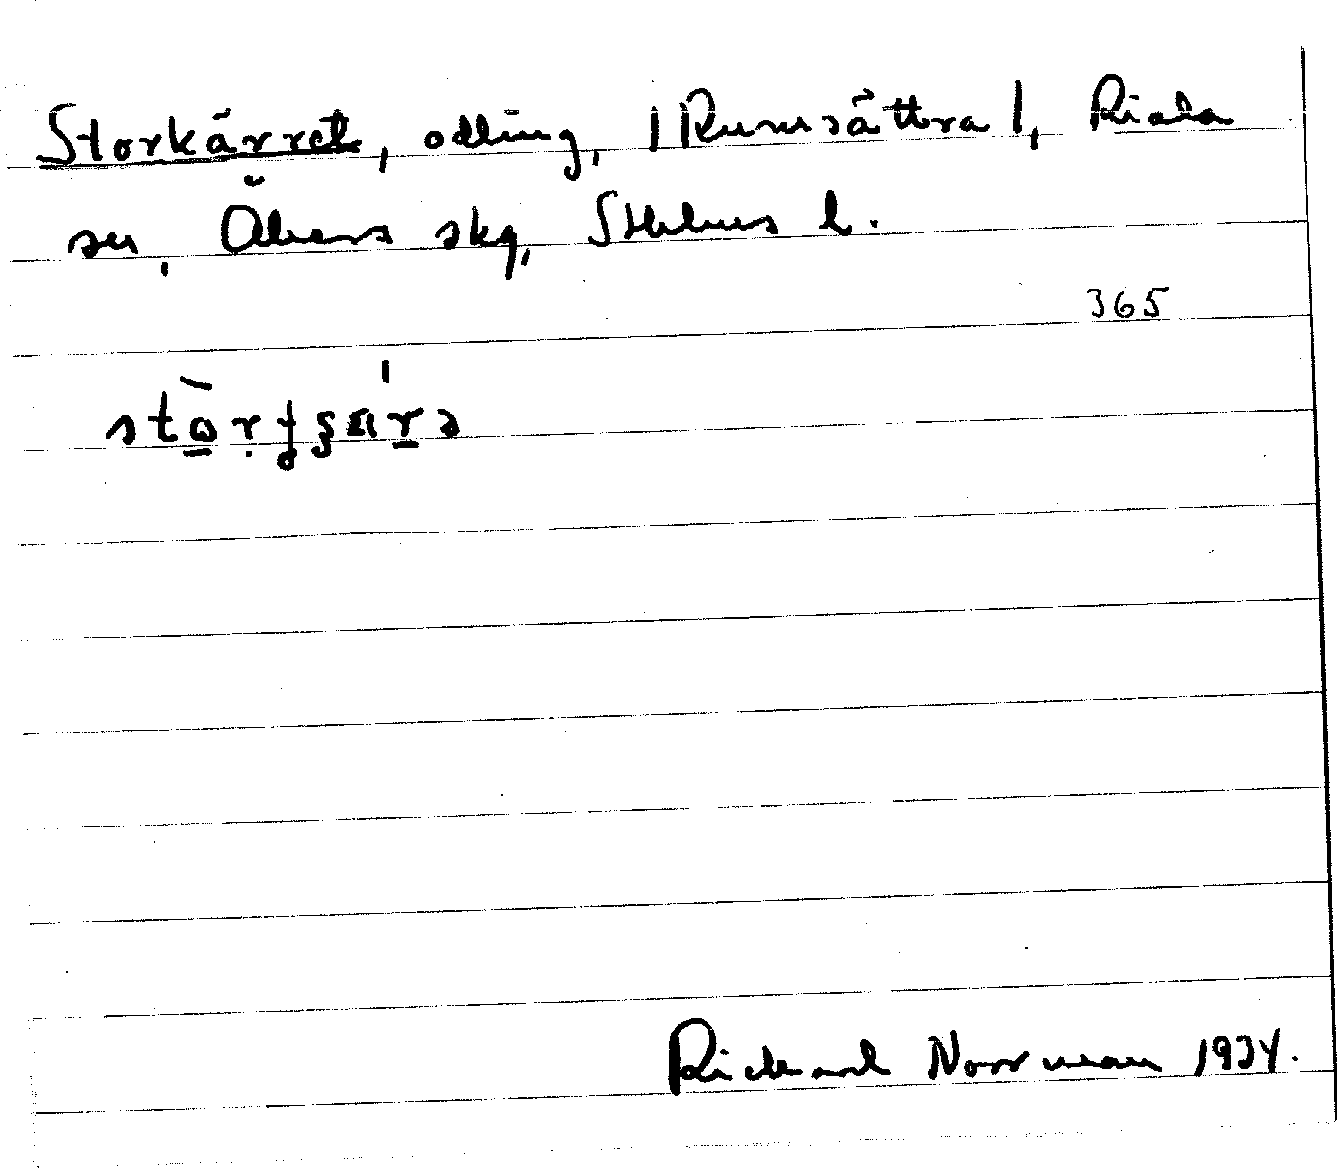 Storkärret, odling, |Rumsättra|, Riala
sn, Åkers skg, Sthlms l.
365
Rickard Norrman 1934.